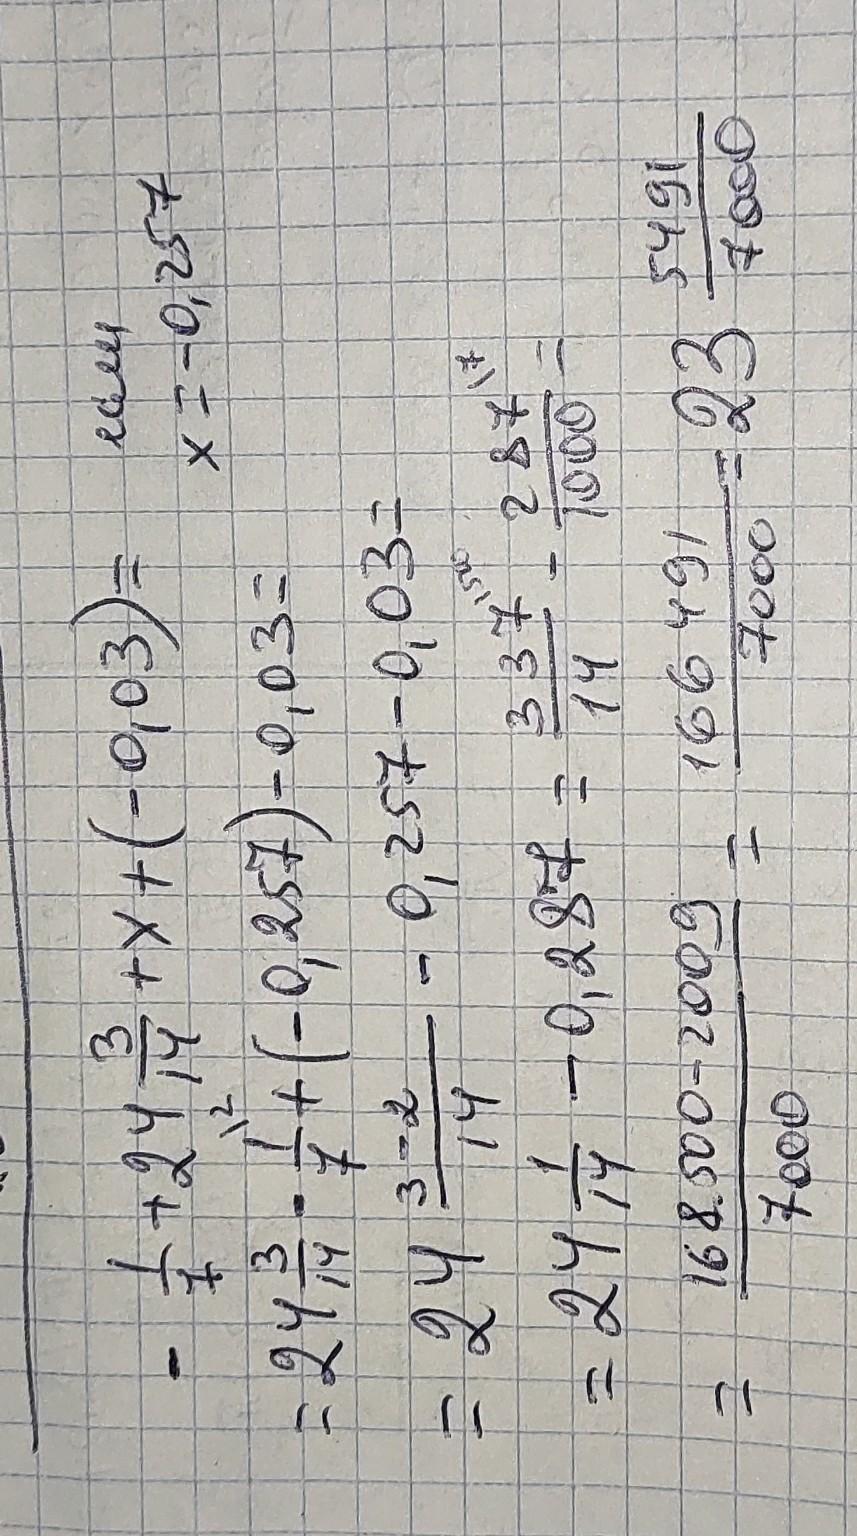 - 1/7 + 24 3/14 + x + (-0,03) = если
x = -0,257
= 24 3/14 - 1/7 \2 + (-0,257) - 0,03 =
= 24 3-2/14 - 0,257 - 0,03 =
= 24 1/14 - 0,287 = 337/14 \500 - 287/1000 \7 =
= 168.500-2009/7000 = 166491/7000 = 23 5491/7000